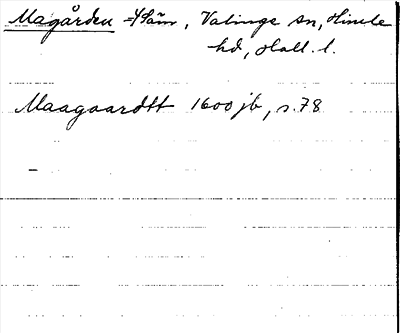 Magården 4 Säm, Valinge sn, Himle
hd, Hall. l.
Maagaardtt 1600 jb, s. 78